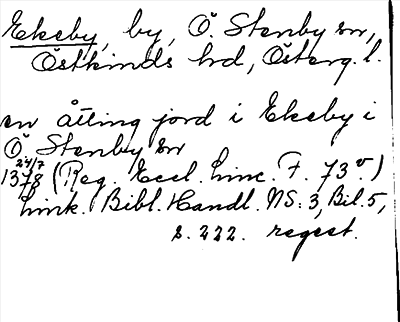 Ekeby, by, Ö. Stenby sn,
Östkinds hd, Österg. l.
en åtting jord i Ekeby i
Ö Stenby sn
24/7
1378 (Reg. Eccl. Linc. F. 73 v.)
Link. Bibl. Handl. NS: 3, Bil. 5,
s. 222. regest.